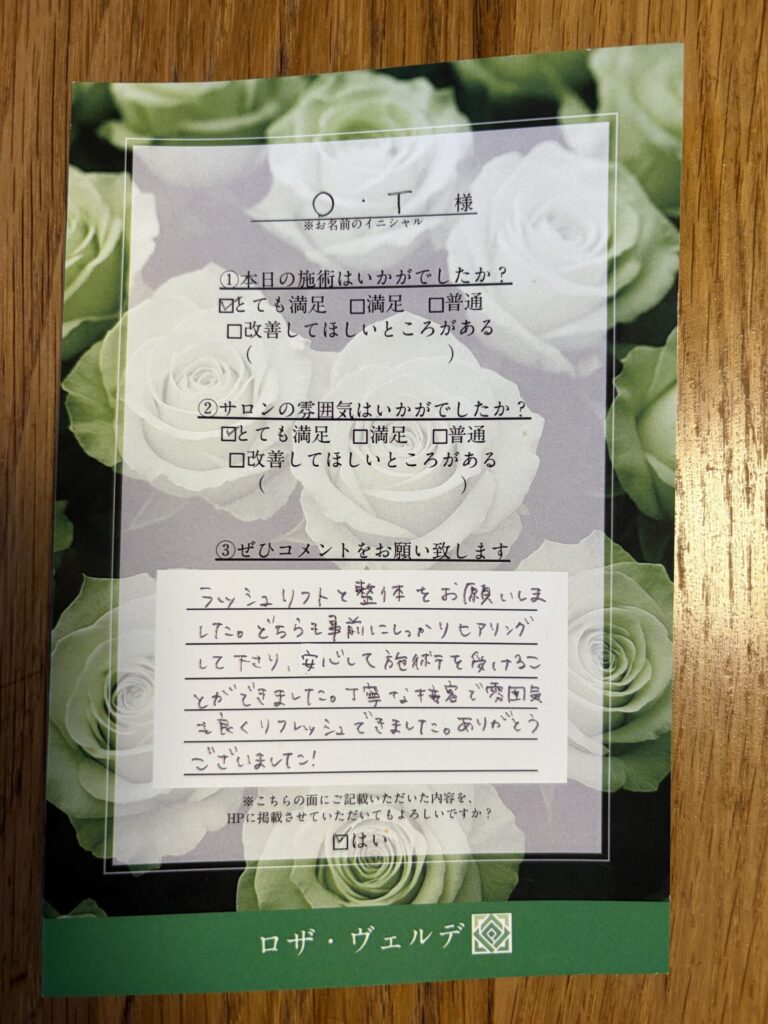 O・T 様
※お名前のイニシャル
①本日の施術はいかがでしたか？
☑とても満足 □満足 □普通
□改善してほしいところがある
( )
②サロンの雰囲気はいかがでしたか？
☑とても満足 □満足 □普通
□改善してほしいところがある
( )
③ぜひコメントをお願い致します
ラッシュリフトと整体をお願いしま
した。どちらも事前にしっかりヒアリング
して下さり、安心して施術を受けるこ
とができました。丁寧な接客で雰囲気
も良くリフレッシュできました。ありがとう
ございました！
※こちらの面にご記載いただいた内容を、
HPに掲載させていただいてもよろしいですか？
☑はい
ロザ・ヴェルデ